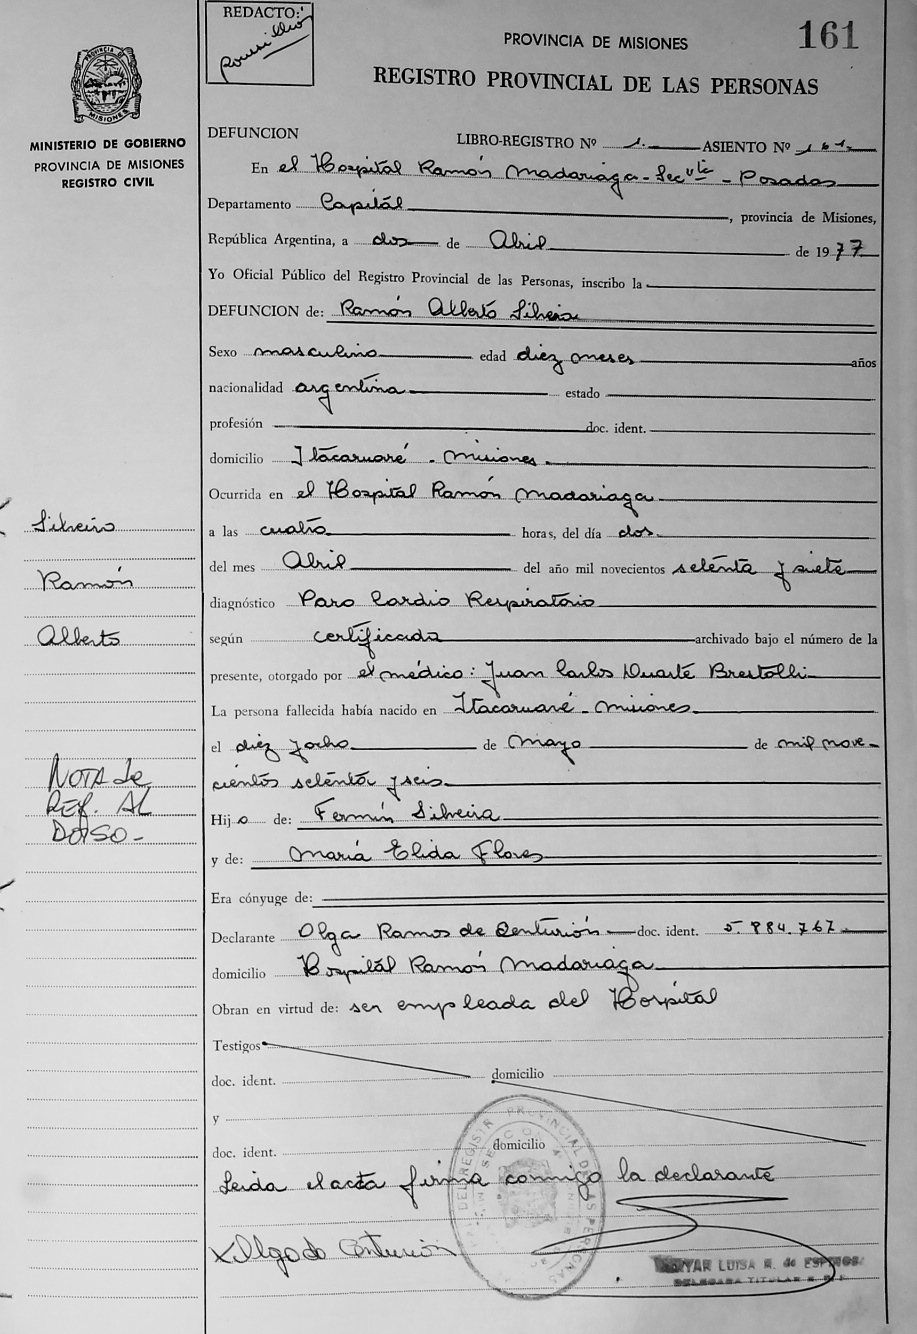 REDACTO:
161
PROVINCIA DE MISIONES
REGISTRO PROVINCIAL DE LAS PERSONAS
PROVINCIA DE
MISIONES
MINISTERIO DE GOBIERNO
PROVINCIA DE MISIONES
REGISTRO CIVIL
DEFUNCION
LIBRO-REGISTRO Nº 1. ASIENTO Nº 161
En el Hospital Ramón Madariaga - Sec - Posadas
Departamento Capitál, provincia de Misiones,
República Argentina, a dos de Abril de 1977
Yo Oficial Público del Registro Provincial de las Personas, inscribo la
DEFUNCION de: Ramón Alberto Silveira
Sexo masculino edad diez meses años
nacionalidad argentina estado
profesión doc. ident.
domicilio Itacaruaré - Misiones.
Ocurrida en el Hospital Ramón Madariaga
a las cuatro horas, del día dos
del mes Abril del año mil novecientos setenta y siete
diagnóstico Paro Cardio Respiratorio
según certificado archivado bajo el número de la
presente, otorgado por el médico: Juan Carlos Duarte
La persona fallecida había nacido en Itacaruaré - Misiones
el diez y ocho de Mayo de mil nove-
cientos setenta y seis
Hijo de: Fermín Silveira
y de: María Elida Flores
Era cónyuge de:
Declarante Olga Ramos de Centurión doc. ident. 5.984.767
domicilio Hospital Ramón Madariaga
Obran en virtud de: ser empleada del Hospital
Testigos
doc. ident. domicilio
y
doc. ident. domicilio
Leida el acta firma conmigo la declarante
x Olga de Centurión
LUISA R. de
DELEGADA TITULAR
Silveira
Ramón
Alberto
NOTA de
REF. AL
DORSO-